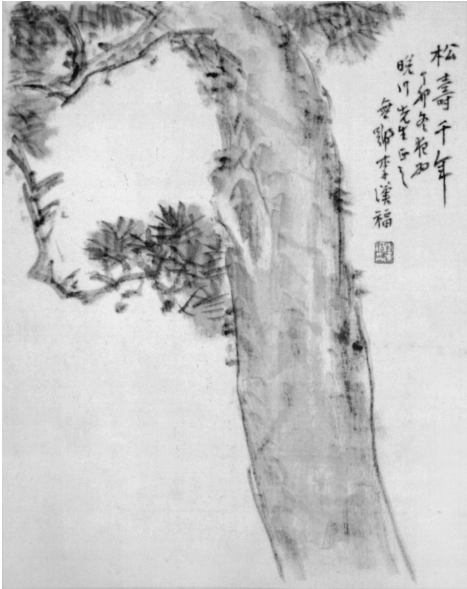 松壽千年
丁卯冬
先生正之
無號李漢福